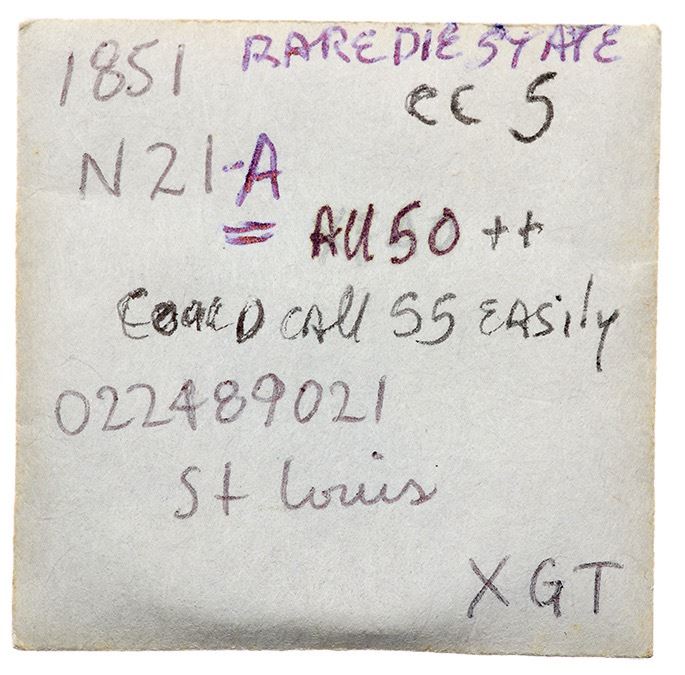 1851 RARE DIE STATE
CC 5
N21-A
AU 50 ++
COULD CALL 55 EASily
022489021
St Louis
XGT